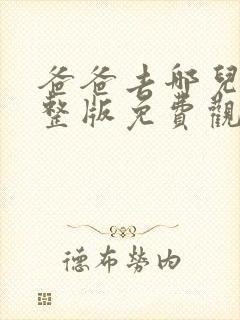 爸爸去哪兒
整版免費觀
德布勞內